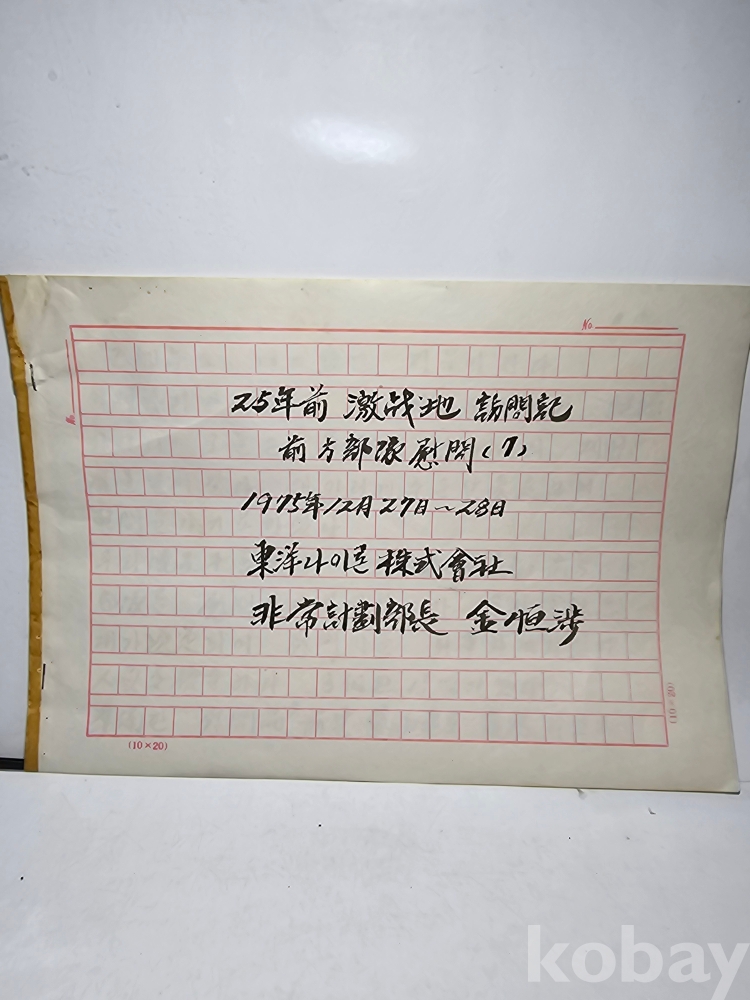 No
25年前 激战地 訪問記
前方部隊慰問(7)
1975年12月27日~28日
東洋나이론 株式會社
非常計劃部長 金恒涉
(10×20)
(10×20)
kobay